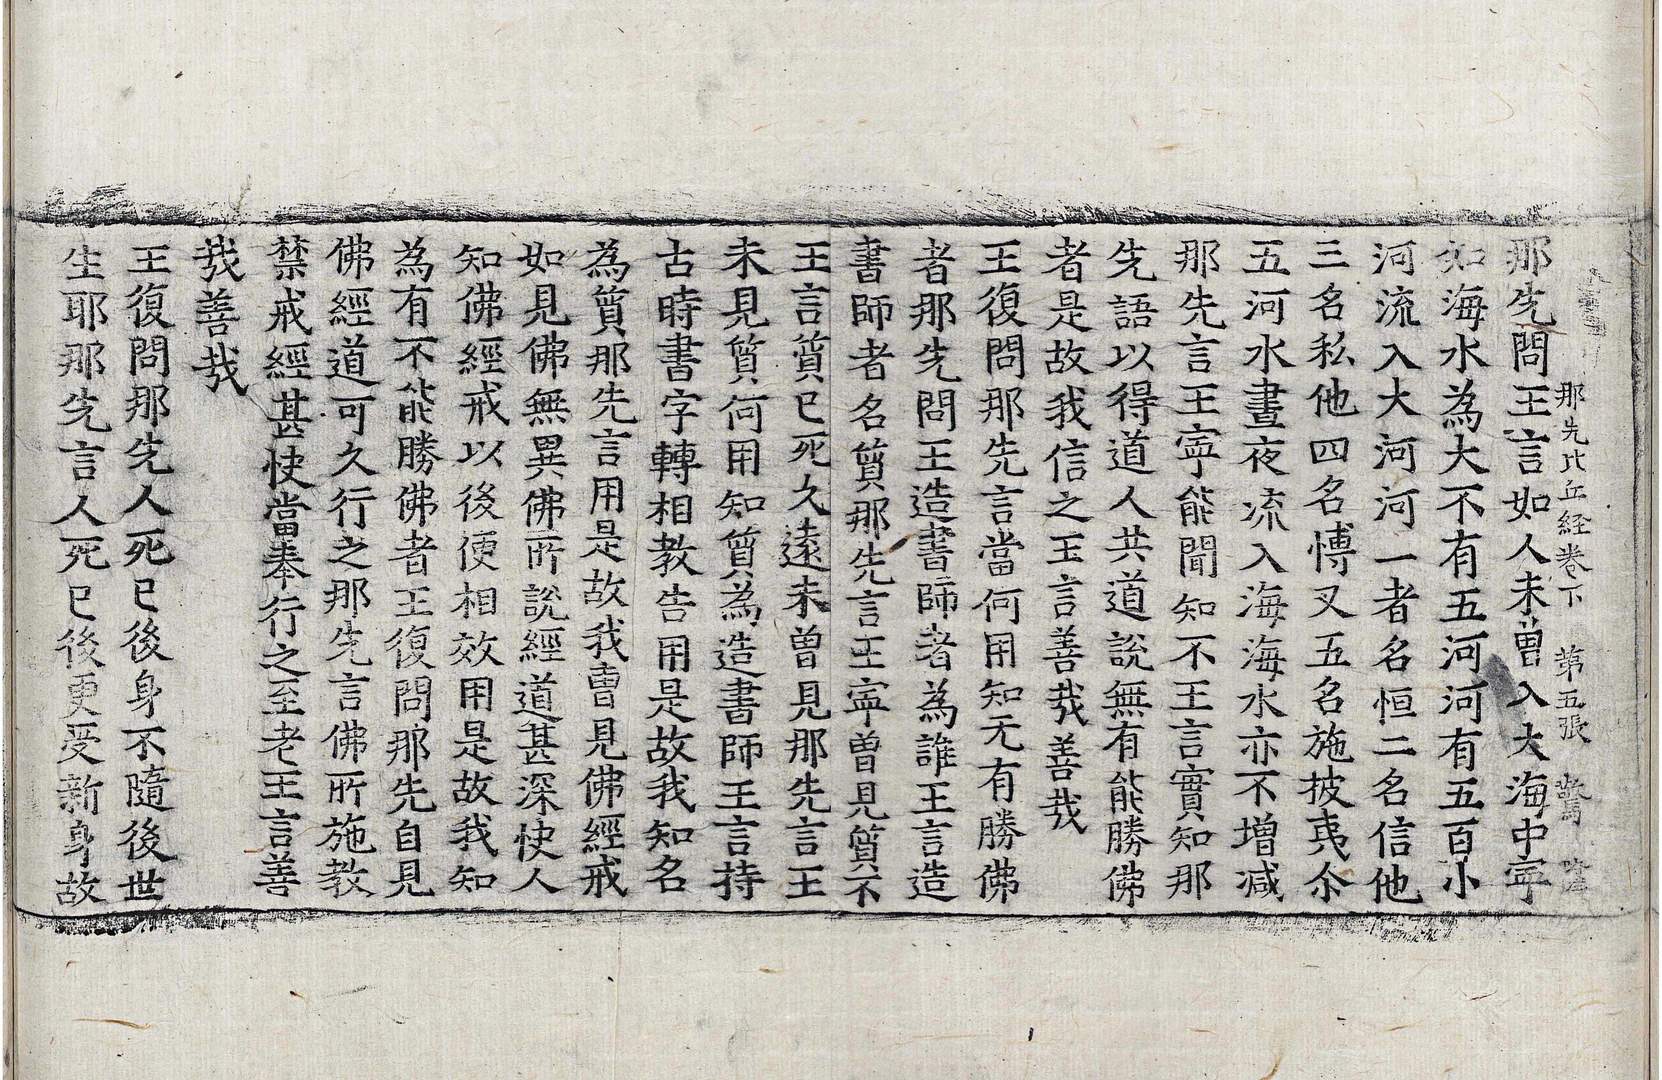 那先比丘経卷下 第五張 驚
那先問王言如人未曽入大海中寧
如海水為大不有五河河有五百小
河流入大河河一者名恒二名信他
三名私他四名愽叉五名施披夷尒
五河水晝夜流入海海水亦不增減
那先言王寧能聞知不王言實知那
先語以得道人共道說無有能勝佛
者是故我信之王言善㦲善㦲
王復問那先言當何用知无有勝佛
者那先問王造書師者為誰王言造
書師者名質那先言王寧曽見質不
王言質已死久遠未曽見那先言王
未見質何用知質為造書師王言持
古時書字轉相教告用是故我知名
為質那先言用是故我曹見佛經戒
如見佛無異佛所說經道甚深快人
知佛經戒以後便相效用是故我知
為有不能勝佛者王復問那先自見
佛經道可久行之那先言佛所施教
禁戒經甚快當奉行之至老王言善
㦲善㦲
王復問那先人死已後身不隨後世
生耶那先言人死已後更受新身故